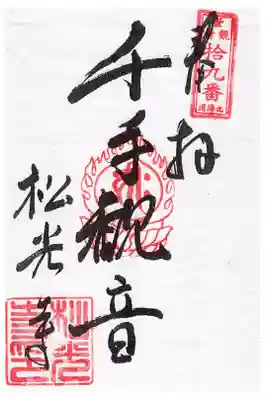 奉拝
拾九番
北海道
千手観音
松光寺